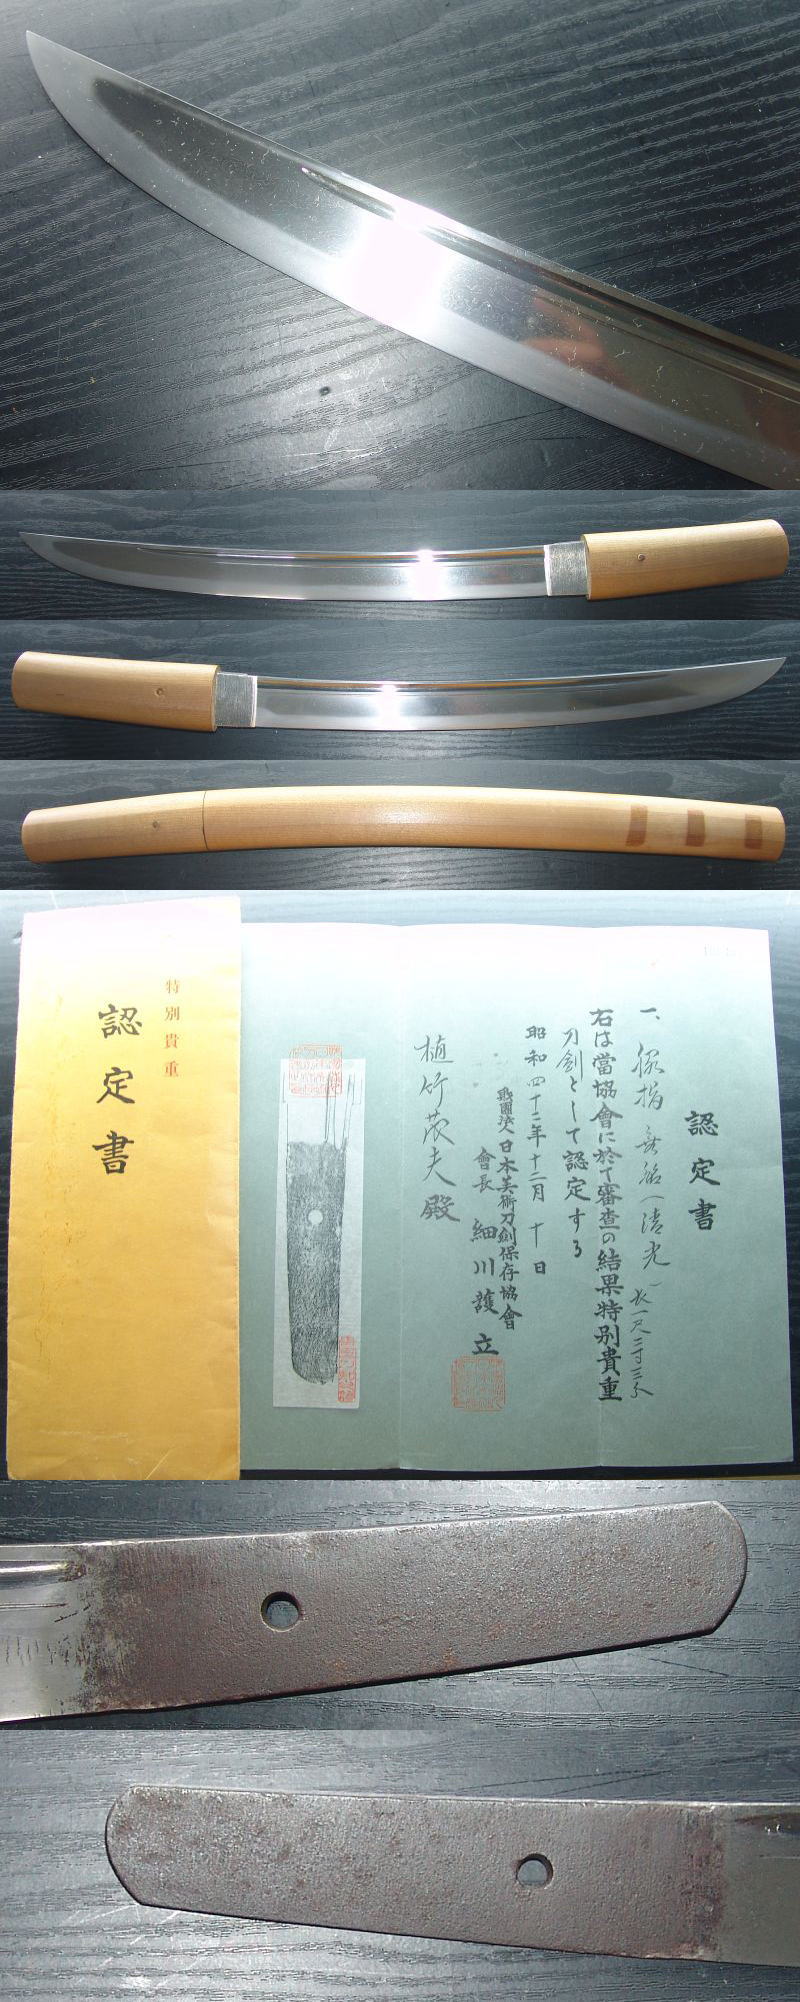 特別貴重
認定書
認定書
一、脇指 無銘(清光) 長一尺二寸三分
右は當協會に於て審査の結果特別貴重
刀劍として認定する
昭和四十二年十二月十日
財團法人日本美術刀劍保存協會
會長 細川護立
植竹茂夫殿